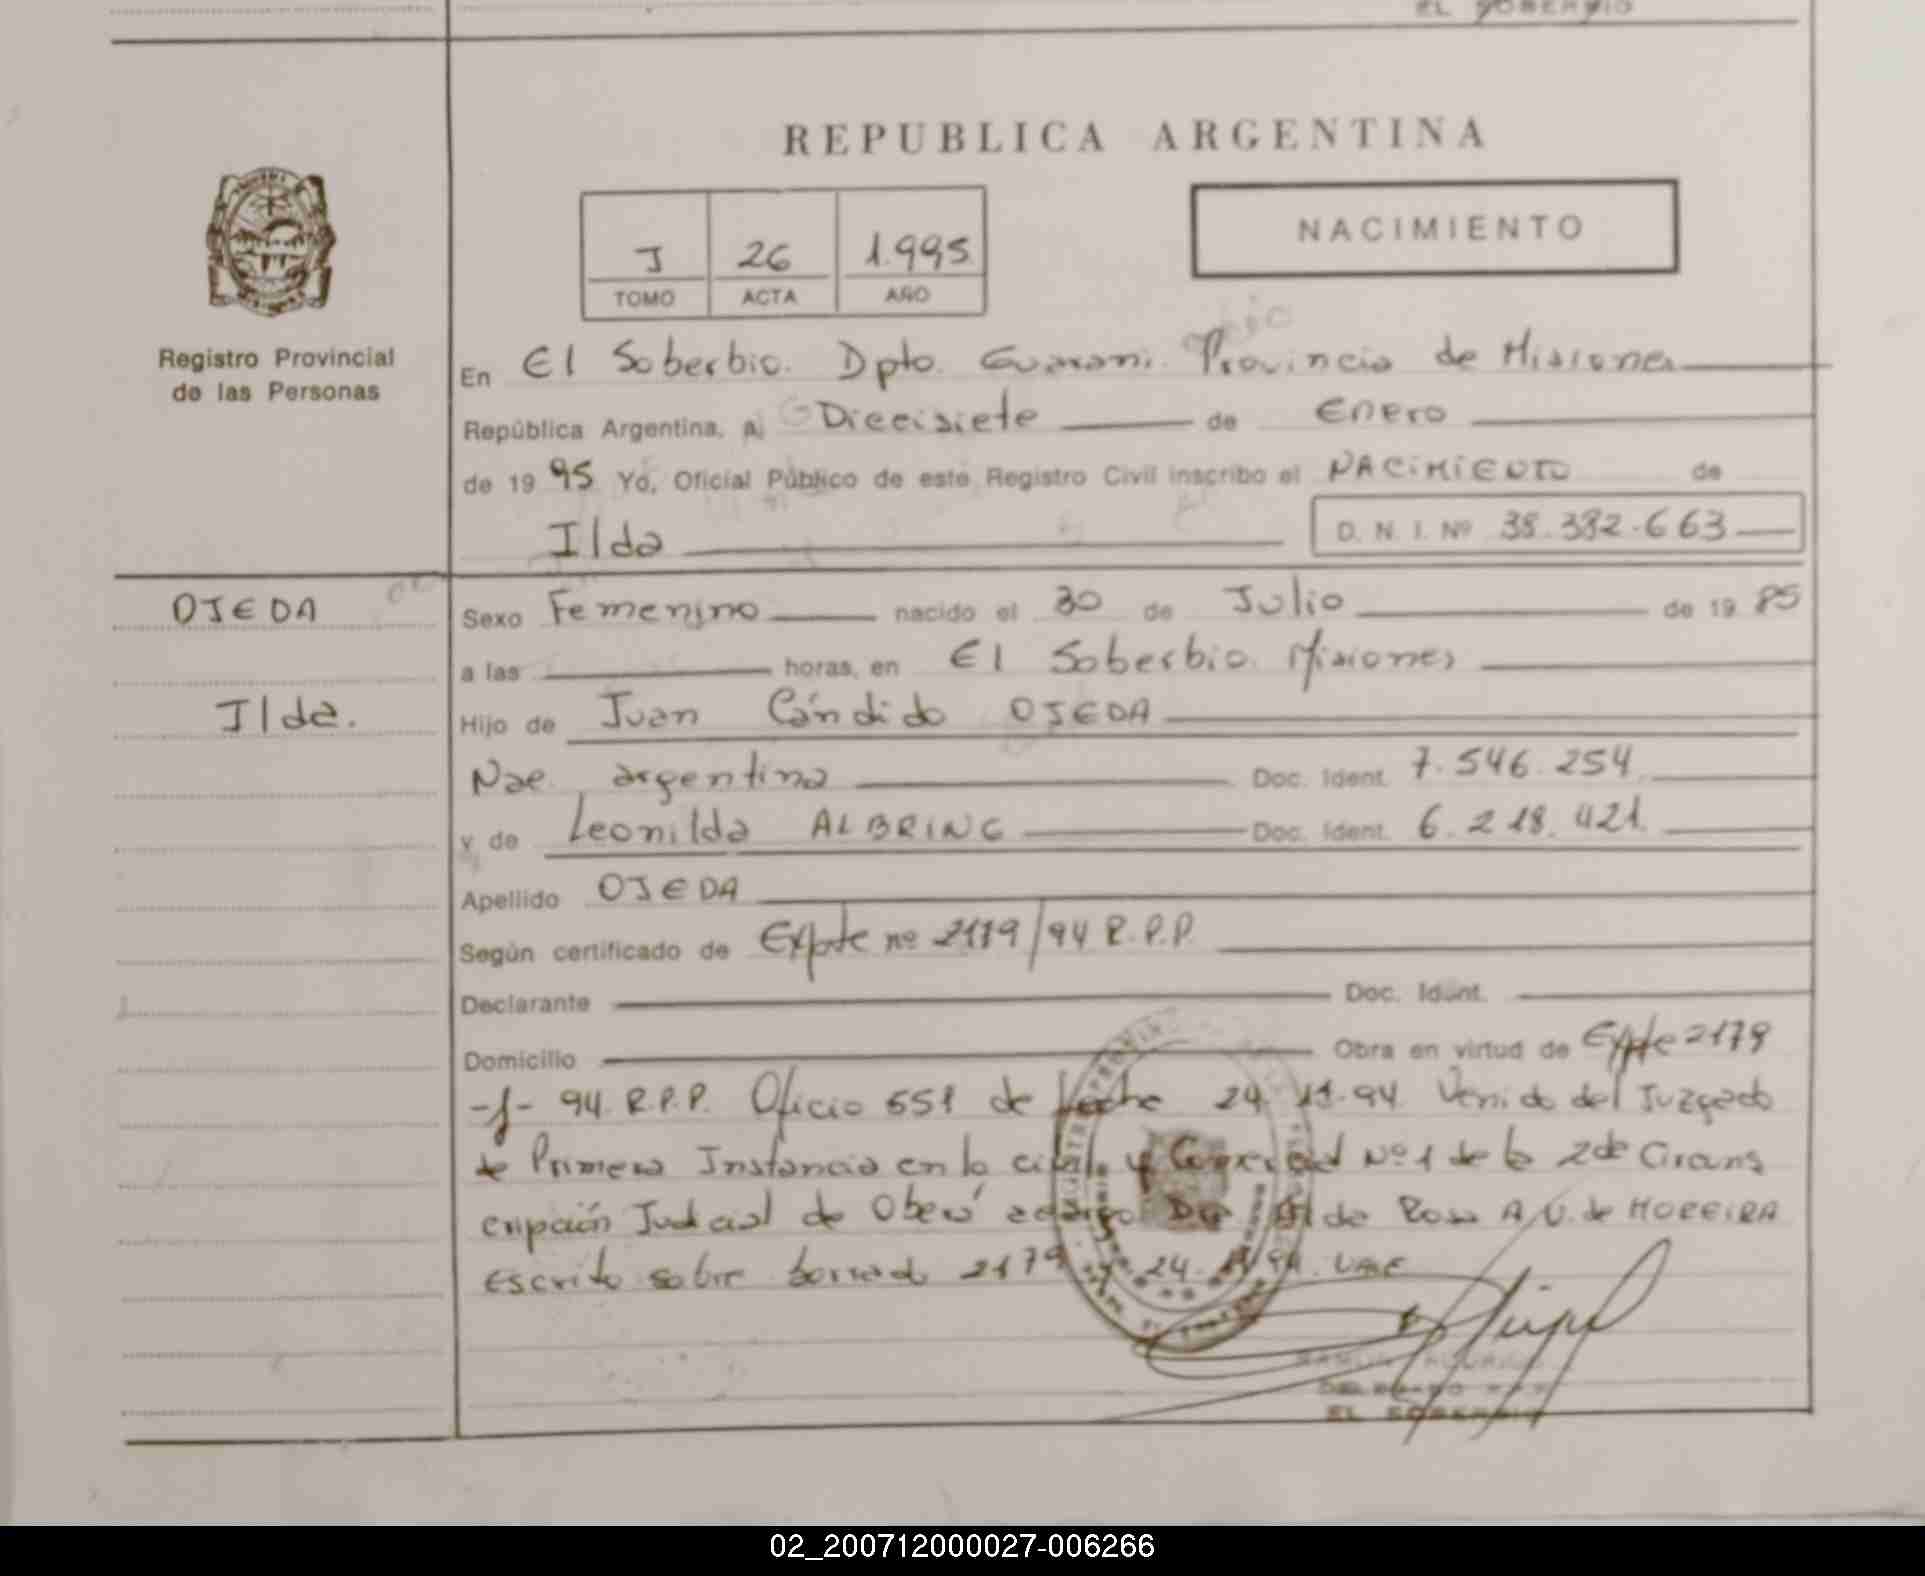 EL SOBERBIO
REPUBLICA ARGENTINA
J 26 1.995
TOMO ACTA AÑO
NACIMIENTO
Registro Provincial
de las Personas
En El Soberbio. Dpto. Guarani. Provincia de Misiones
República Argentina, a Diecisiete de Enero
de 19 95 Yo, Oficial Público de este Registro Civil inscribo el NACIMIENTO de
Ilda
D. N. I. Nº 38.382.663
OJEDA
Ilda.
Sexo Femenino nacido el 30 de Julio de 19 85
a las horas, en El Soberbio. Misiones
Hijo de Juan Cándido OJEDA
Nac. argentina Doc. Ident. 7.546.254
y de Leonilda ALBRING Doc. Ident. 6.218.421.
Apellido OJEDA
Según certificado de Expte nº 2179/94 R.P.P.
Declarante Doc. Ident.
Domicilio Obra en virtud de Expte 2179
-/- 94. R.P.P. Oficio 551 de fecha 24.11.94. Venido del Juzgado
de Primera Instancia en lo civil y Comercial Nº 1 de la 2da Circuns
cripción Judicial de Oberá a cargo Dra. de Rosa A. U. de MOREIRA
Escrito sobre borrado 2179. 24.11.94. VALE
EL SOBERBIO
02_200712000027-006266